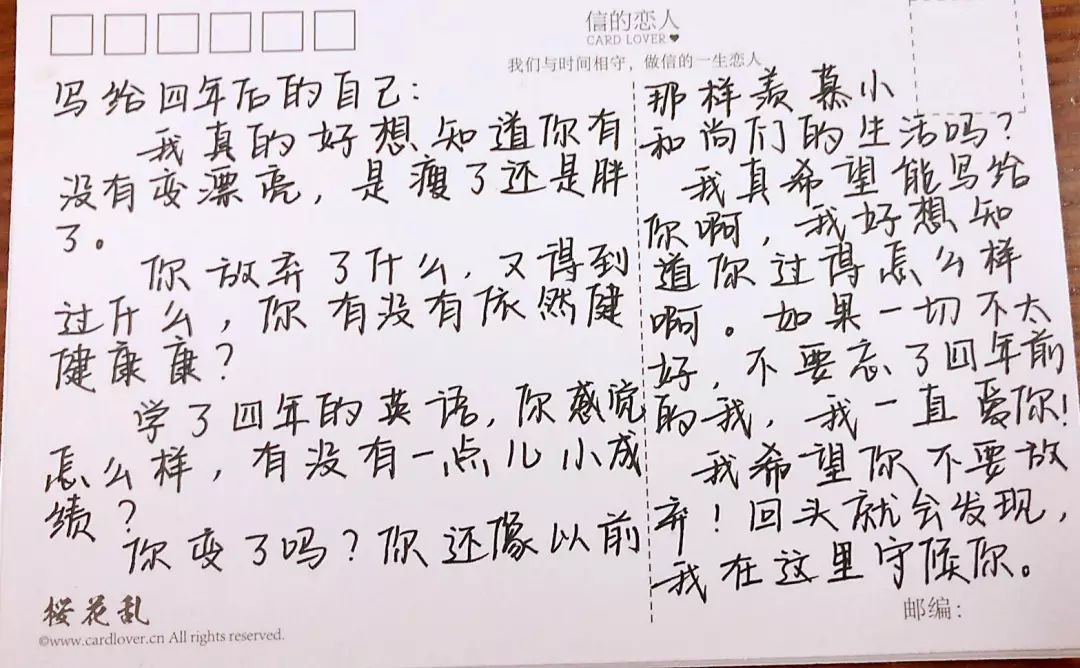 信的恋人
CARD LOVER
我们与时间相守，做信的一生恋人
写给四年后的自己：
我真的好想知道你有
没有变漂亮，是瘦了还是胖
了。
你放弃了什么，又得到
过什么，你有没有依然健
健康康？
学了四年的英语，你感觉
怎么样，有没有一点儿小成
绩？
你变了吗？你还像以前
那样羡慕小
和尚们的生活吗？
我真希望能写给
你啊，我好想知
道你过得怎么样
啊。如果一切不太
好，不要忘了四年前
的我，我一直爱你！
我希望你不要放
弃！回头就会发现，
我在这里守候你。
桜花乱
©www.cardlover.cn All rights reserved.
邮编：